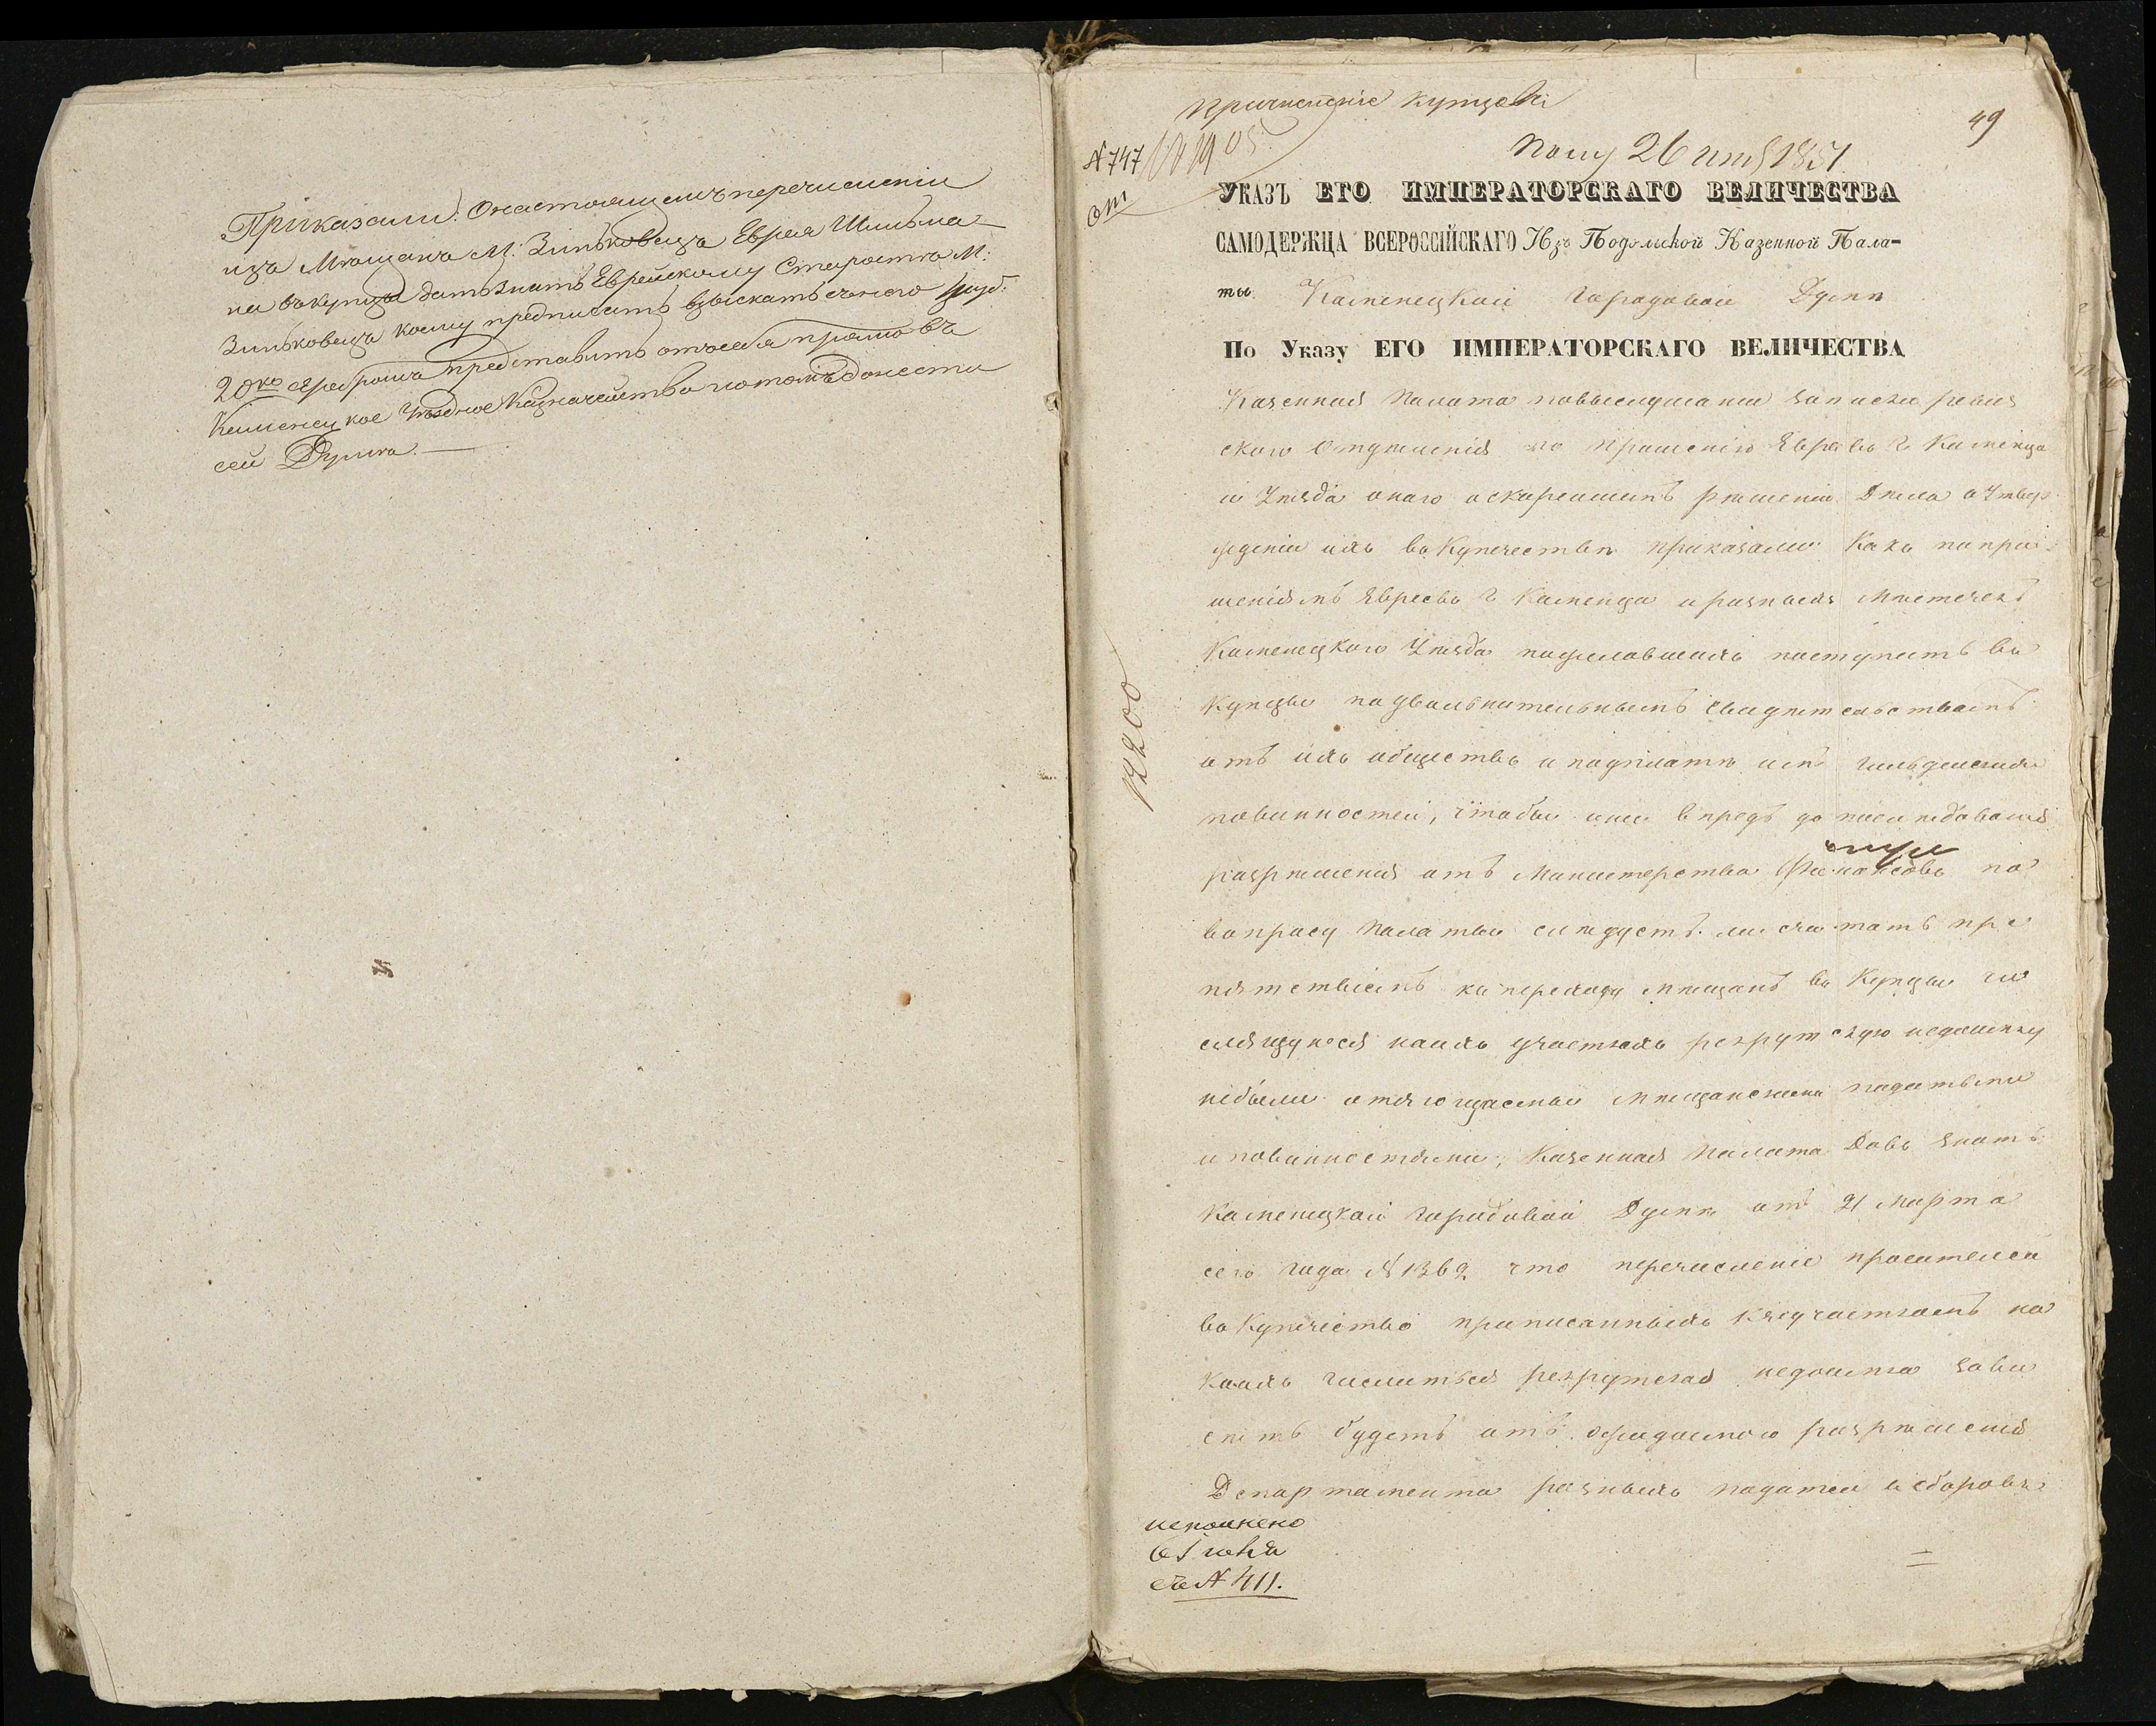 Приказали: О настоящемъ перечисленіи
изъ Мѣщанъ М: Зиньковецъ Еврея Шильма
на въ купцы дать знать Еврейскому Старостѣ М:
Зиньковецъ коему предписать взыскать съ него
20 ко серебромъ представить отъ себя прямо въ
Каменецкое Уѣздное Казначейство и потомъ донести
сей Думѣ.
причисленіе купцовъ
49
№ 747
Полу 26 1851
от
УКАЗЪ ЕГО ИМПЕРАТОРСКАГО ВЕЛИЧЕСТВА
САМОДЕРЖЦА ВСЕРОССІЙСКАГО Изъ Подольской Казенной Пала-
ты Каменецкой Городовой Думѣ
По Указу ЕГО ИМПЕРАТОРСКАГО ВЕЛИЧЕСТВА
Казенная Палата по выслушаніи записки ревиз
скаго Отдѣленія по прошенію Евреевъ г Каменца
и Уѣзда онаго о скорейшемъ рѣшеніи Дѣла о Утвер
жденіи ихъ въ Купечествѣ приказали Какъ по про
шеніямъ Евреевъ г Каменца и разныхъ Мѣстечекъ
Каменецкаго Уѣзда пожелавшихъ поступить въ
Купцы по увольнительнымъ свидѣтельствамъ
отъ ихъ обществъ и по уплатѣ ими гильдейскихъ
повинностей, чтобы они впредь до послѣдованія
разрѣшенія отъ Министерства Финансовъ по
вопросу Палаты слѣдуетъ ли считать пре
пятствіемъ къ переходу мѣщанъ въ Купцы чи
слящуюся на ихъ участкахъ рекрутскую недоимку
небыли отягощаемы мѣщанскими податьми
и повинностями, Казенная Палата Давъ знать
Каменецкой Городовой Думѣ отъ 21 Марта
сего года № 1369 что перечисленіе просителей
въ Купечество приписанныхъ къ участкамъ на
коихъ числиться рекрутская недоимка зави
сѣть будетъ отъ ожидаемаго разрѣшенія
Департамента разныхъ податей и сборовъ
12200
исполнено
61 юня
за № 411.